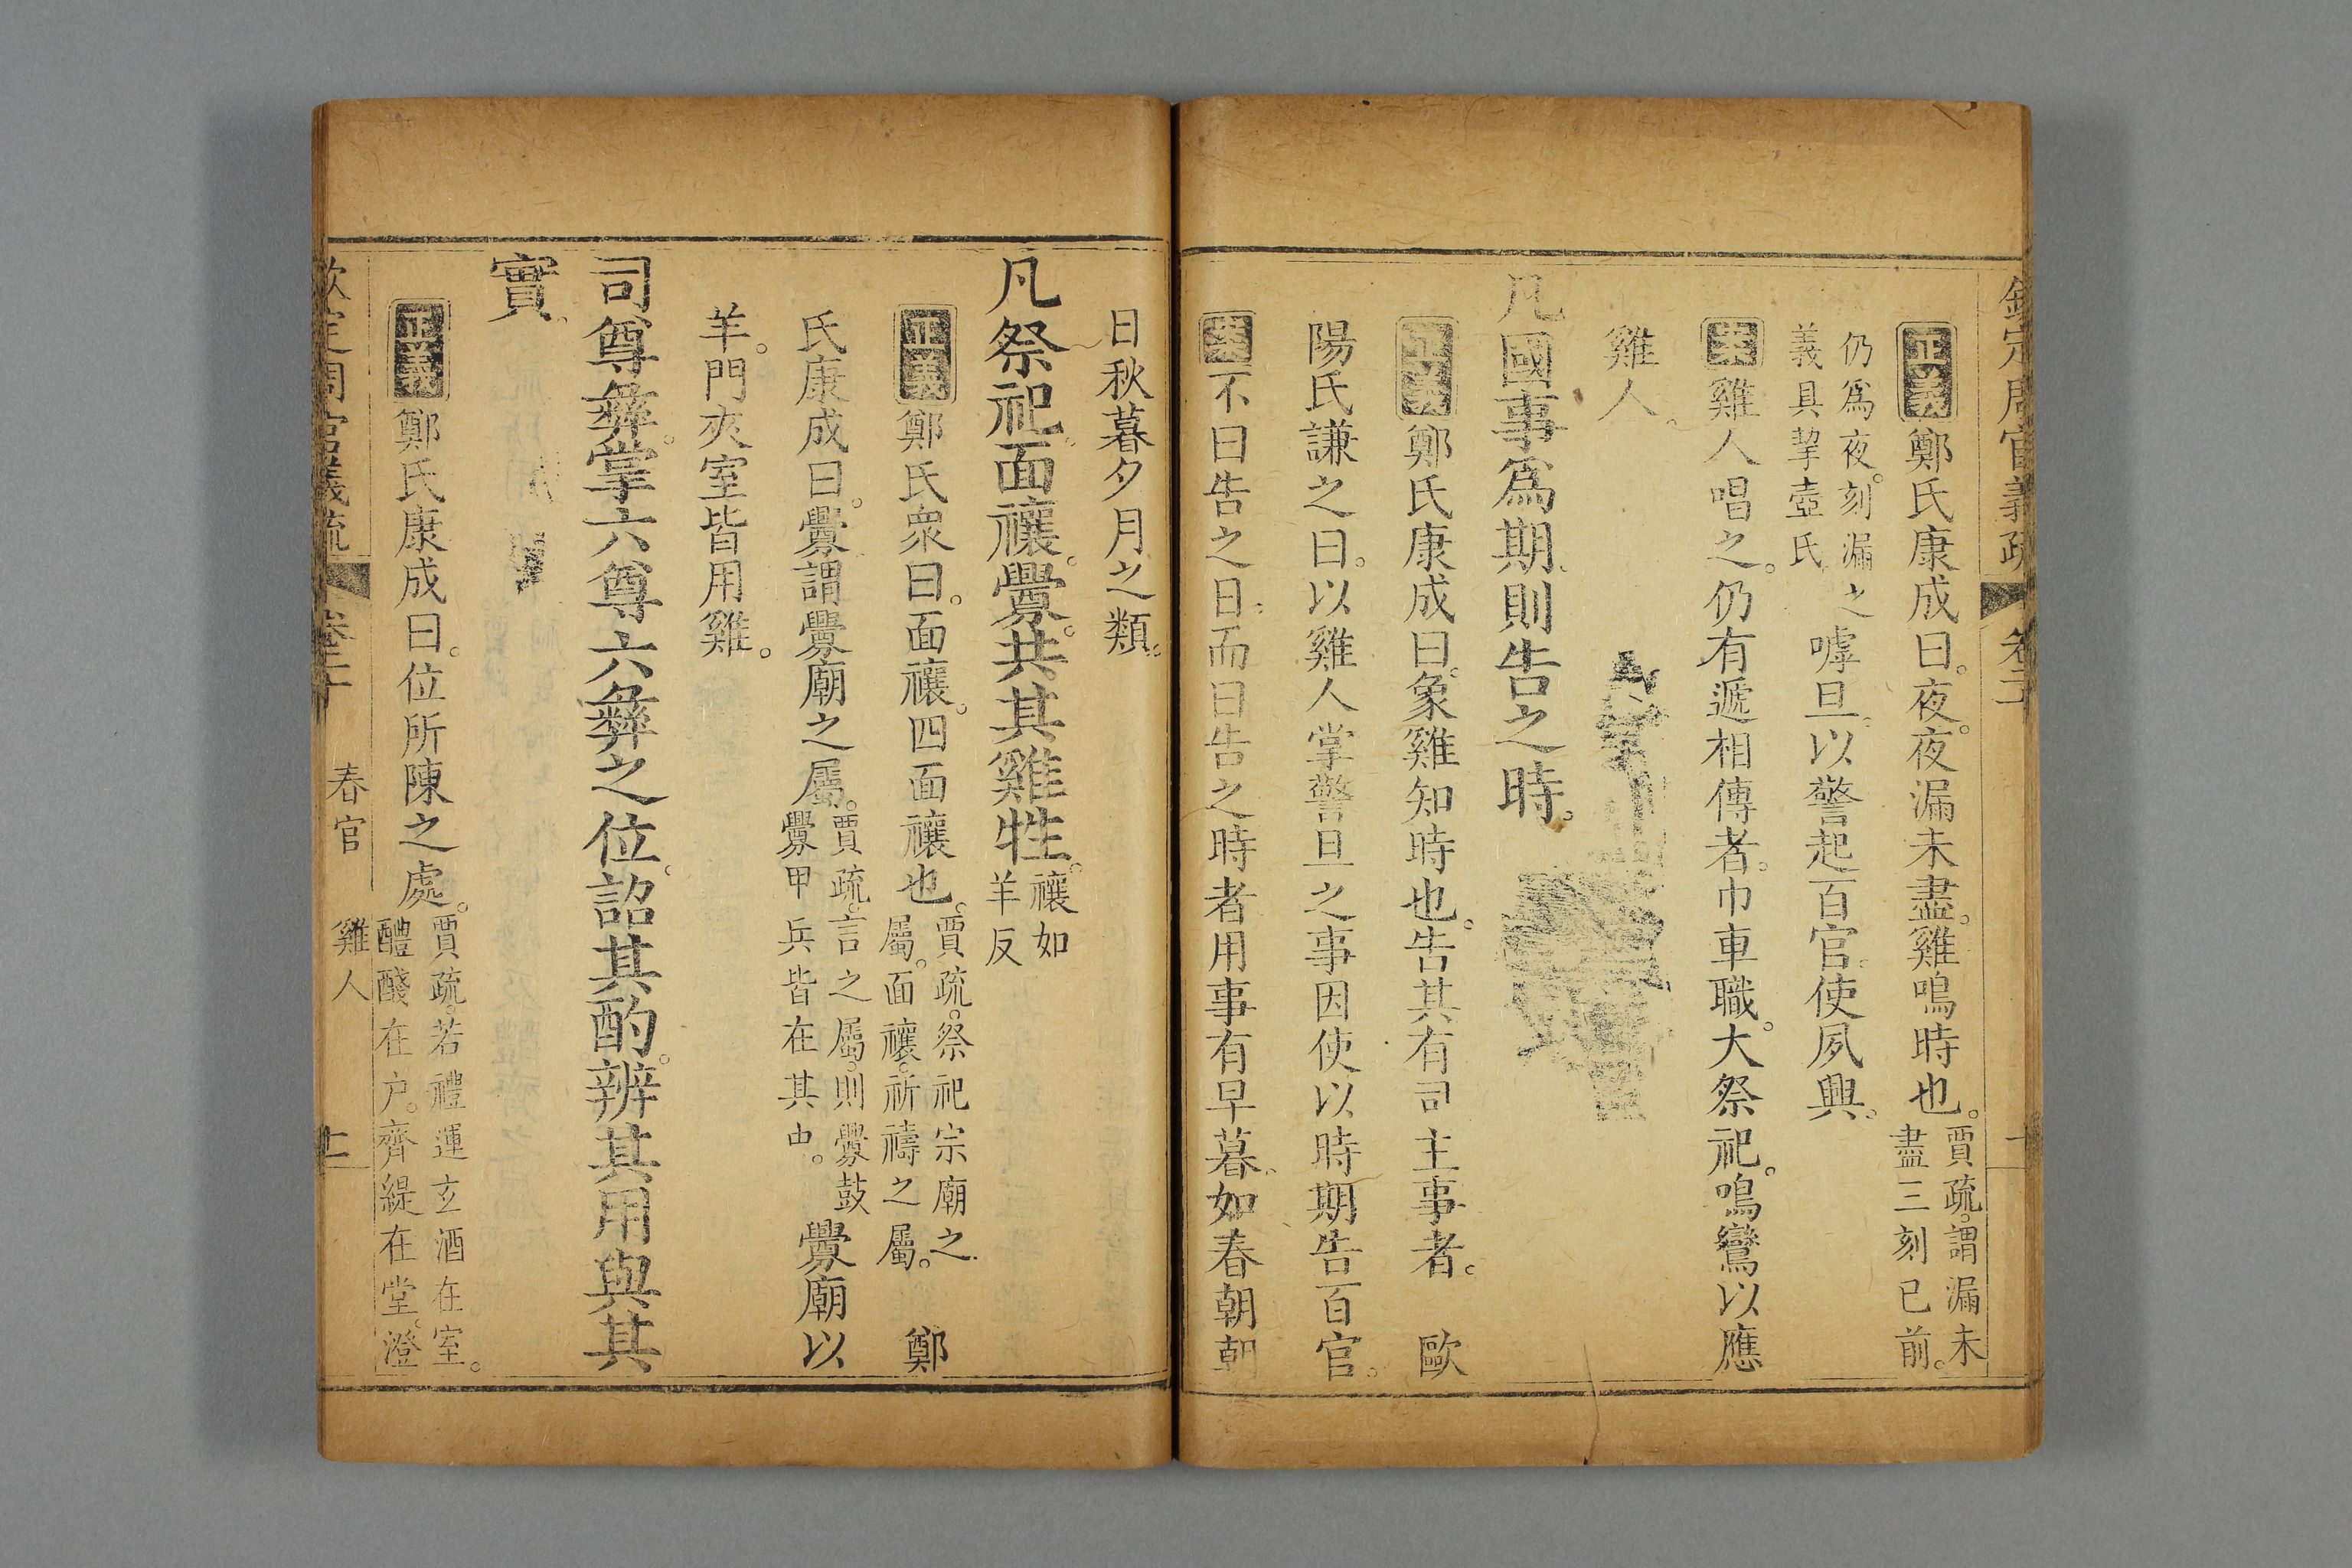 欽定周官義疏 卷二十
正義鄭氏康成曰。夜。夜漏未盡。雞鳴時也。賈疏。謂漏未
盡三刻已前。
仍爲夜。刻漏之
義具挈壺氏
嘑旦。以警起百官。使夙興。
案雞人唱之。仍有遞相傳者。巾車職。大祭祀。鳴鸞以應
雞人。
凡國事爲期。則告之時。
正義鄭氏康成曰。象雞知時也。告其有司主事者。 歐
陽氏謙之曰。以雞人掌警旦之事因使以時期告百官。
案不曰告之日。而曰告之時者用事有早暮。如春朝朝
日秋暮夕月之類。
凡祭祀面禳。釁。共其雞牲。禳如
羊反
正義鄭氏衆曰。面禳。四面禳也。賈疏。祭祀宗廟之
屬。面禳。祈禱之屬。
鄭
氏康成曰。釁謂釁廟之屬。賈疏。言之屬。則釁鼓
釁甲兵皆在其中。
釁廟以
羊。門夾室皆用雞。
司尊彝。掌六尊六彝之位。詔其酌。辨其用與其
實。
正義鄭氏康成曰。位所陳之處。賈疏。若禮運玄酒在室。
醴醆在戶。齊緹在堂。澄
欽定周官義疏 卷二十 春官 雞人